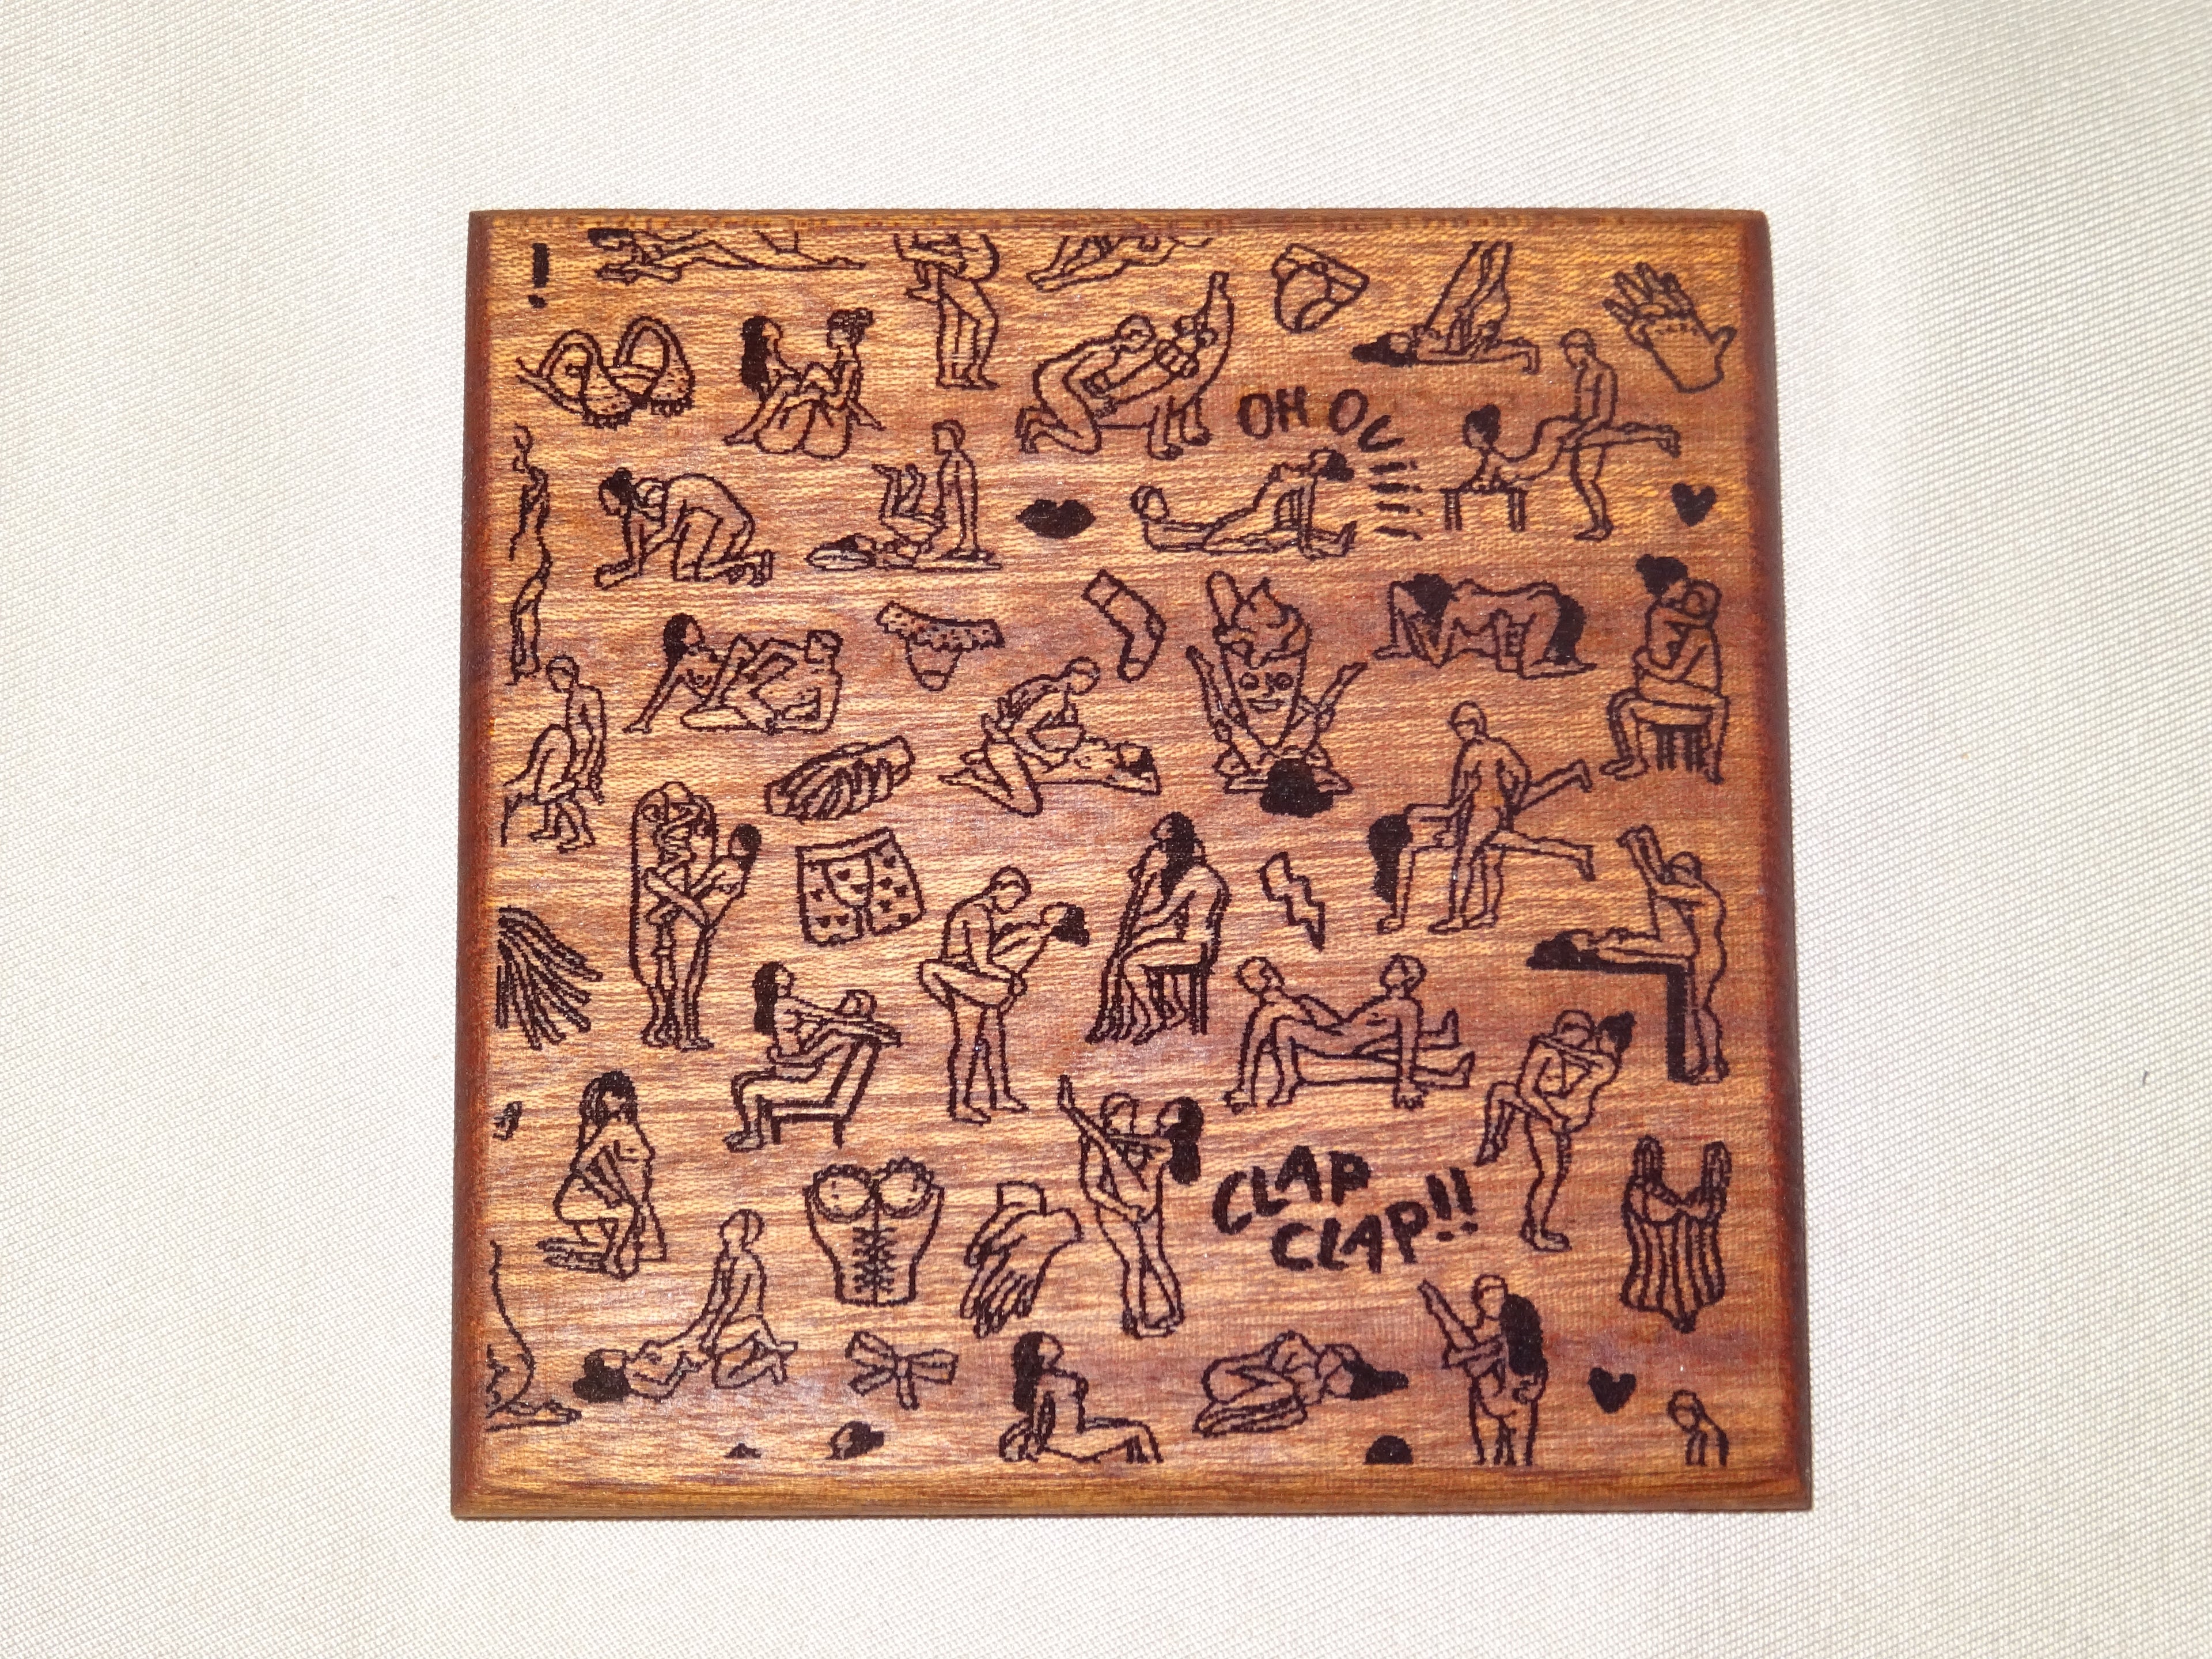 !
OH OU
CLAP
CLAP!!